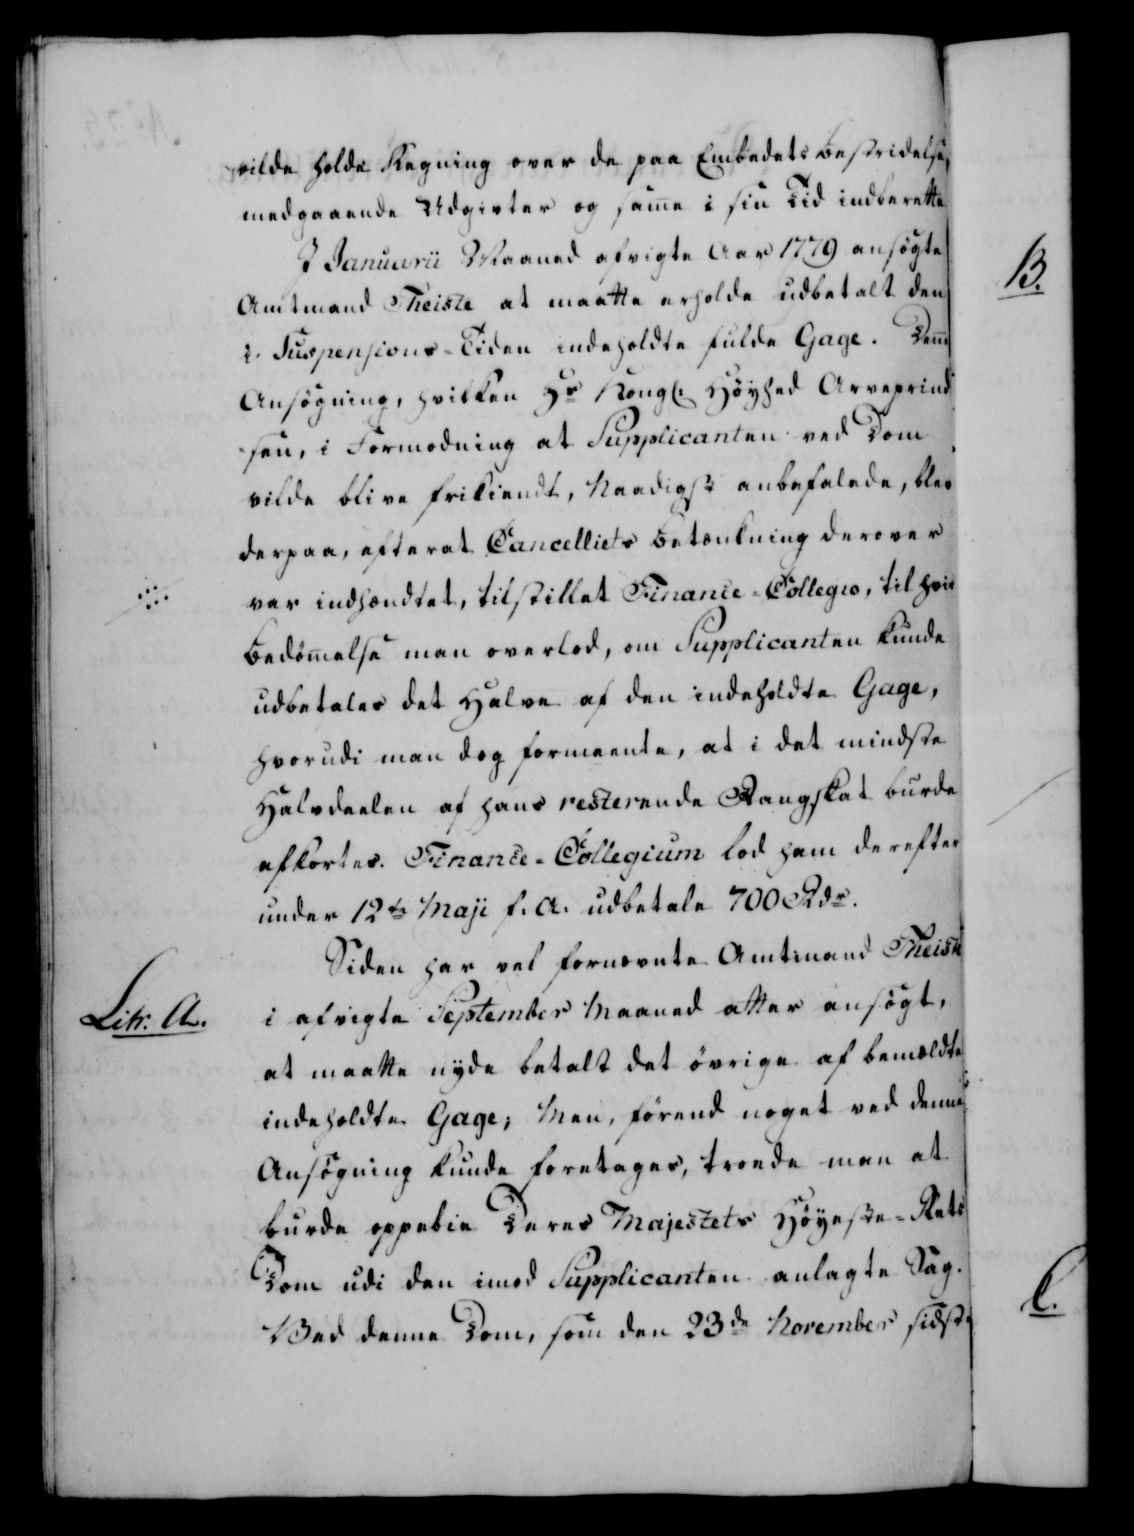 vilde holde Regning over de paa Embedets Bestridelse
medgaaende Udgivter og samme i sin Tid indberette
I Januarii Maaned afvigte Aar 1779 ansögte
Amtmand Theiste at maatte erholde udbetalt den
i Suspensions-Tiden indeholdte fulde Gage. Denne
Ansögning, hvilken Hs Kongl. Höyhed Arveprind
sen, i Formodning at Supplicanten ved Dom
vilde blive frikiendt, Naadigst anbefalede, blev
derpaa, efterat Cancelliets Betænkning derover
var indhændtet, tilstillet Finance-Collegio, til hvis
Bedömelse man overlod, om Supplicanten kunde
udbetales det Halve af den indeholdte Gage,
hvorudi man dog formeente, at i det mindste
Halvdeelen af hans resterende Rangskat burde
afkortes. Finance-Collegium lod ham derefter
under 12te Maji f. A. udbetale 700 Rdr.
Siden har vel fornævnte Amtmand Theiste
Litr. A.
i afvigte September Maaned atter ansögt,
at maatte nyde betalt det övrige af bemældte
indeholdte Gage; Men, förend noget ved denne
Ansögning kunde foretages, troede man at
burde oppebie Deres Majestets Höyeste-Rets
Dom udi den imod Supplicanten anlagte Sag.
Ved denne Dom, som den 23de November sidst
B.
C.